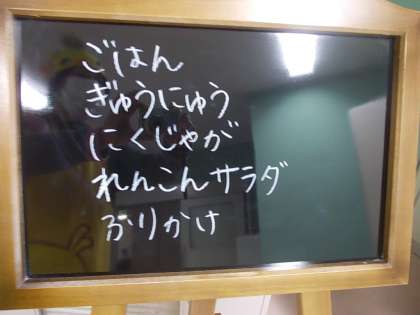 ごはん
ぎゅうにゅう
にくじゃが
れんこんサラダ
ふりかけ